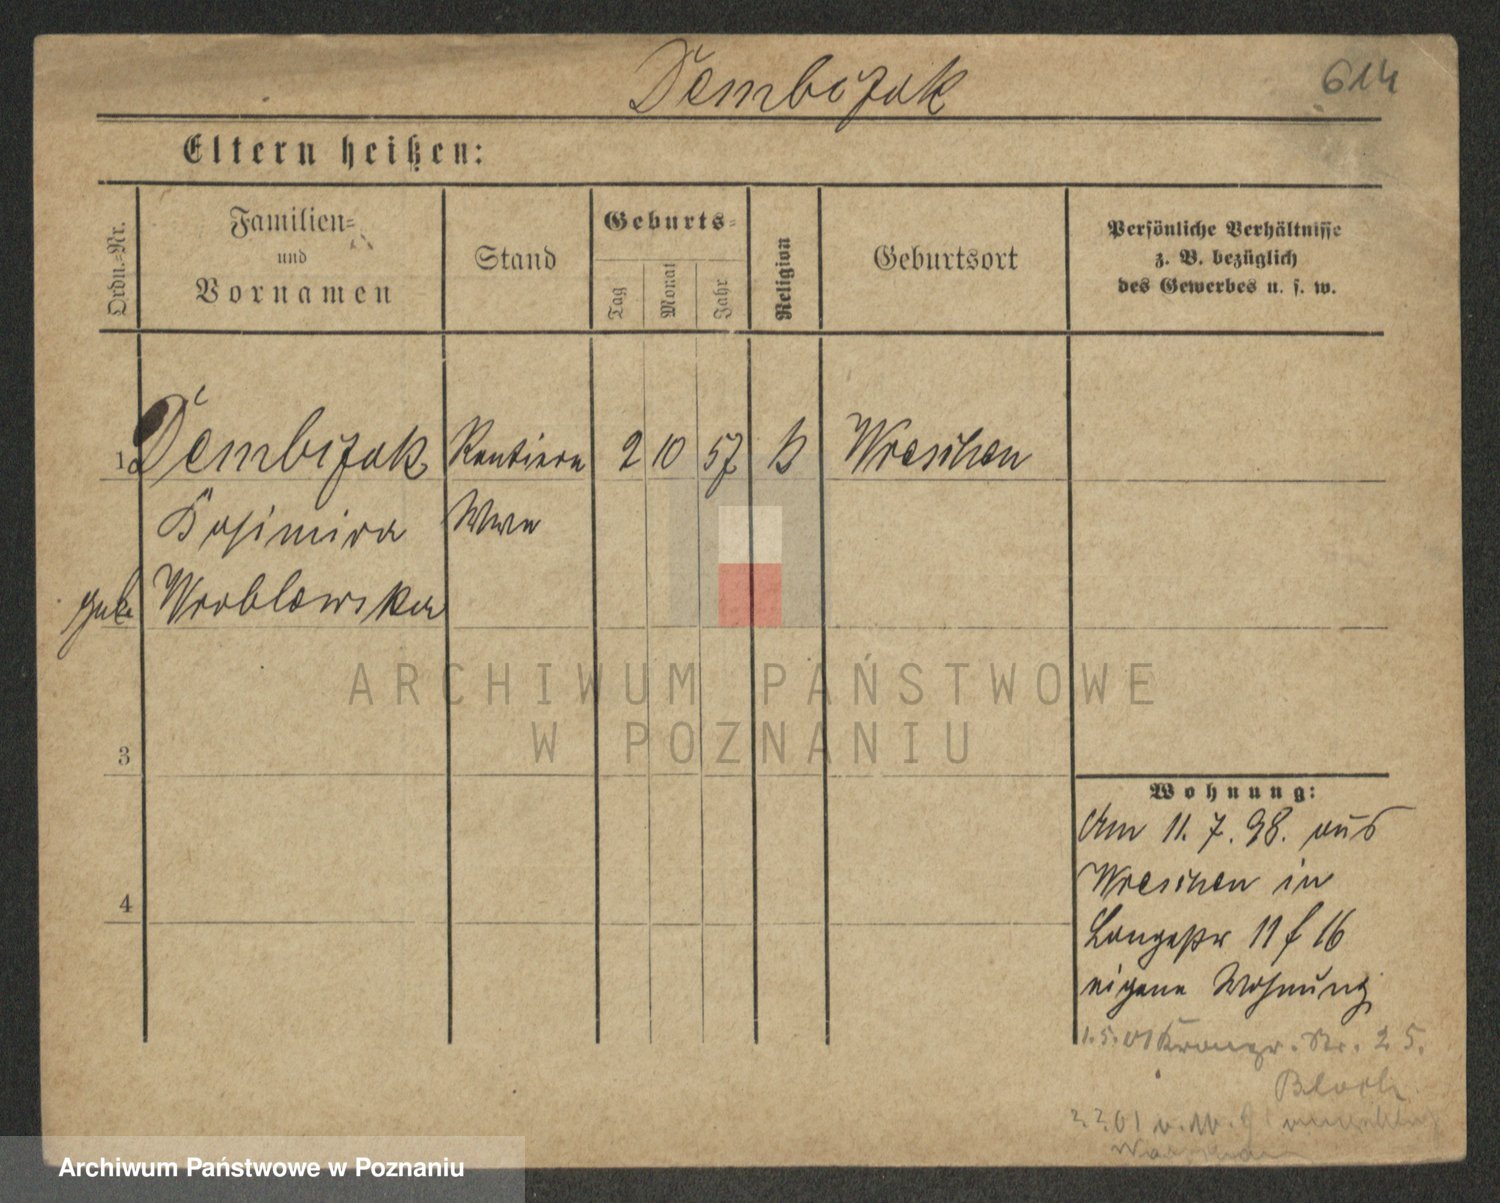 Dembizak
614
Eltern heißen:
Ordn.-Nr.
Familien-
und
Vornamen
Stand
Geburts-
Tag
Monat
Jahr
Religion
Geburtsort
Persönliche Verhältnisse
z. B. bezüglich
des Gewerbes u. s. w.
1 Dembizak Rentiere 2 10 57 k Wreschen
Kasimira Wwe
geb. Wroblewska
ARCHIWUM PAŃSTWOWE
W POZNANIU
3
4
Wohnung:
Am 11. 7. 98. aus
Wreschen in
Langestr 11 f 16
eigene Wohnung
1.5.01 Nr. 25.
Bloch
Archiwum Państwowe w Poznaniu